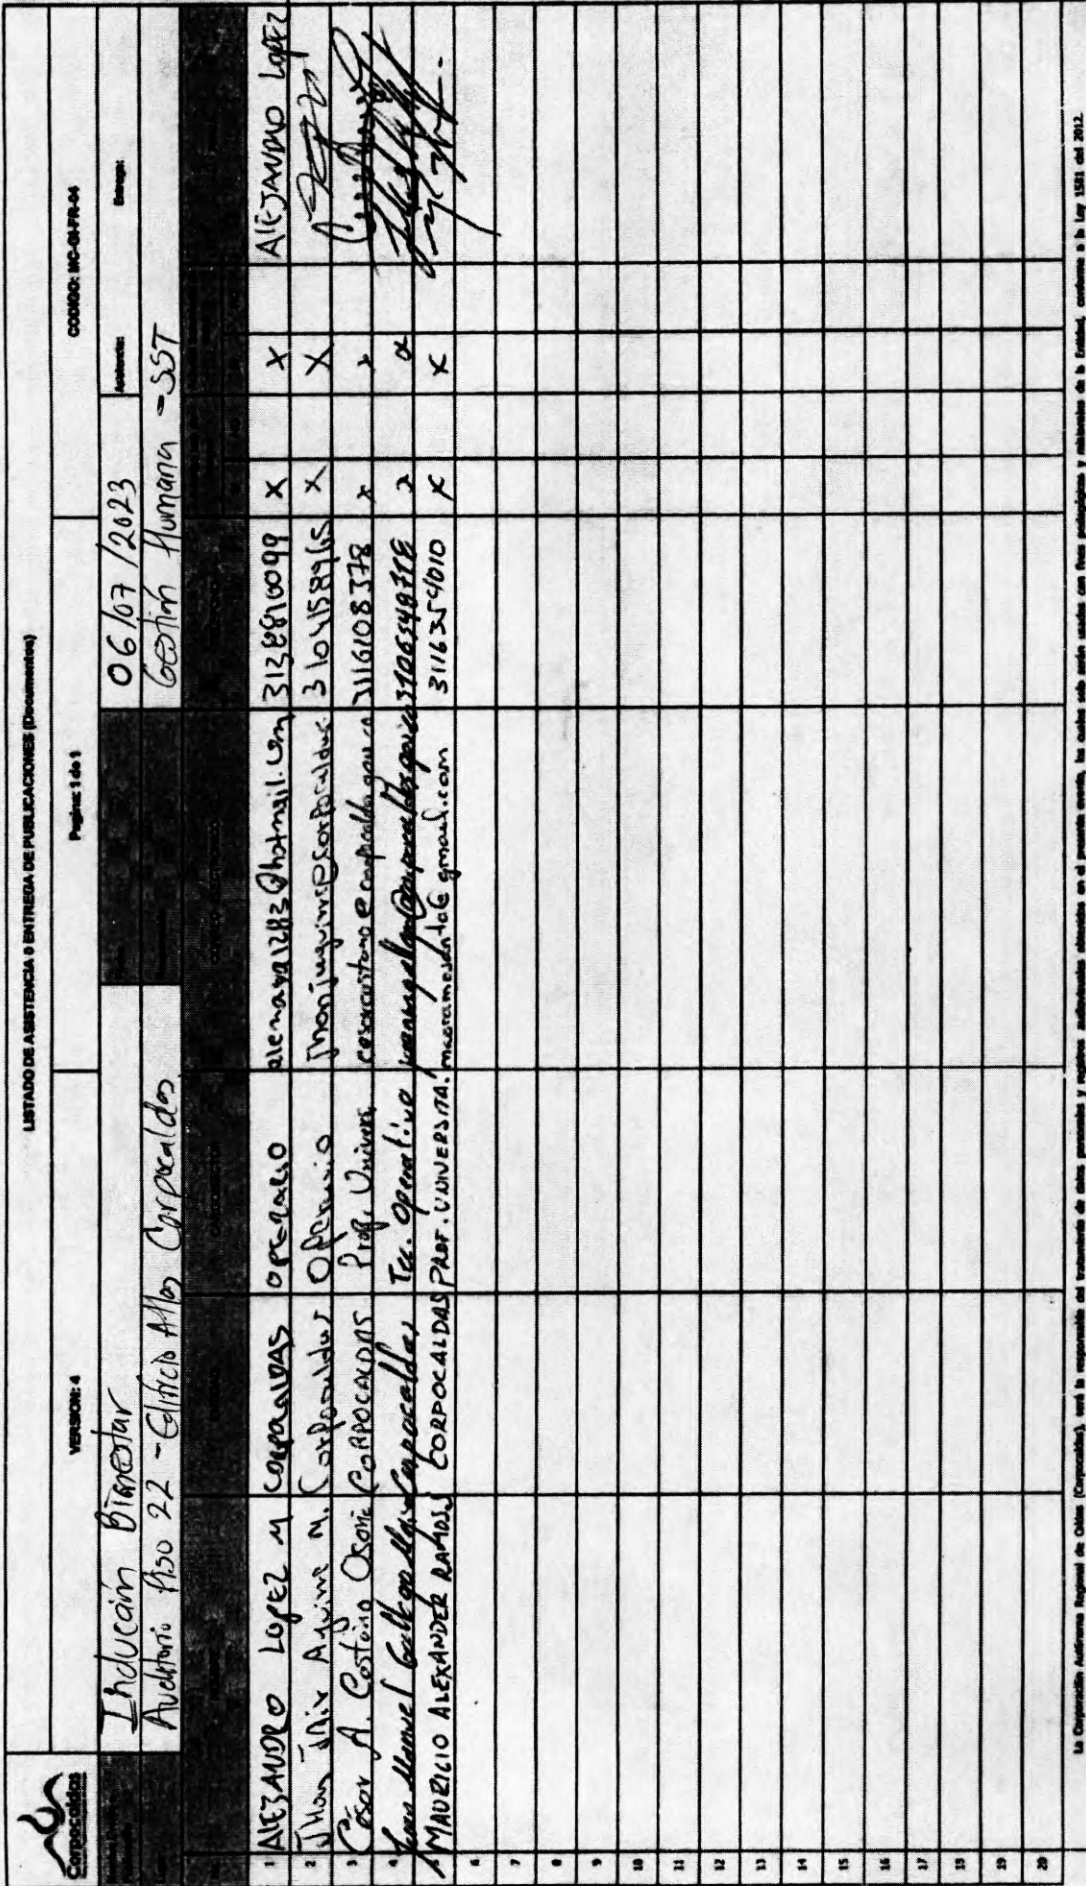 Corpocaldas
LISTADO DE ASISTENCIA O ENTREGA DE PUBLICACIONES (Documentos)
VERSION: 4
Pagina: 1 de 1
CODIGO: MC-GI-FR-04
Inducción Bienestar
06/07/2023
Asistencia:
Entrega:
Auditorio Piso 22 - Edificio Atlas Corpocaldas
Gestión Humana - SST
1 ALEJANDRO LOPEZ M CORPOCALDAS OPERARIO alemama1283@hotmail.com 3128810099 X X ALEJANDRO LOPEZ
2 Jhon Jair Aguirre M. Corpocaldas Operario 3104158965 X X
3 César A. Castaño Osorio CORPOCALDAS Prof. Univers. 3116108378 x x
4 Juan Manuel Gallego Corpocaldas Tec. Operativo 3106548718 x x
5 MAURICIO ALEXANDER RAMOS CORPOCALDAS PROF. UNIVERSITA. 3116354010 x x
6
7
8
9
10
11
12
13
14
15
16
17
18
19
20
La Corporación Autónoma Regional de Caldas (Corpocaldas), será la responsable del tratamiento de datos personales y registros audiovisuales obtenidos en el presente evento, los cuales solo serán usados con fines pedagógicos y misionales de la Entidad, conforme a la Ley 1581 del 2012.